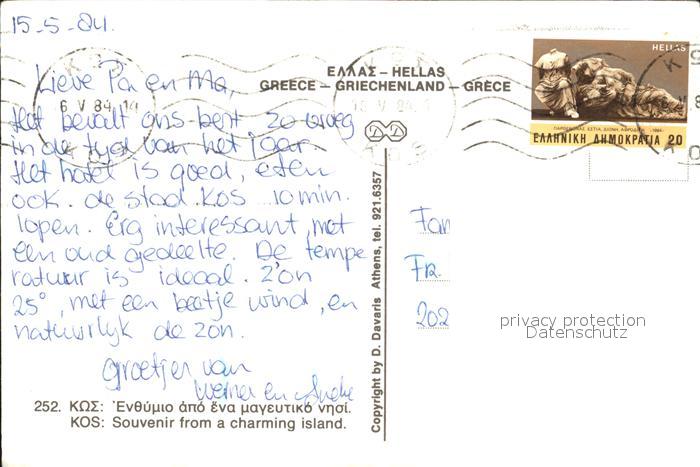 15-5-84.
Lieve Pa en Ma,
Het bevalt ons best zo vroeg
in de tijd van het jaar
Het hotel is goed, eten
ook. de stad Kos 10 min.
lopen. Erg interessant met
een oud gedeelte. De tempe
ratuur is ideaal. Z'on
25°, met een beetje wind, en
natuurlyk de zon.
groetjes van
Werner en
252. ΚΩΣ: Ἐνθύμιο ἀπό ἕνα μαγευτικό νησί.
KOS: Souvenir from a charming island.
ΕΛΛΑΣ – HELLAS
GREECE – GRIECHENLAND – GRÈCE
6 V 84.14
Copyright by D. Davaris Athens, tel. 921.6357
HELLAS
ΕΛΛΗΝΙΚΗ ΔΗΜΟΚΡΑΤΙΑ 20
Fam
Fr.
202
privacy protection
Datenschutz